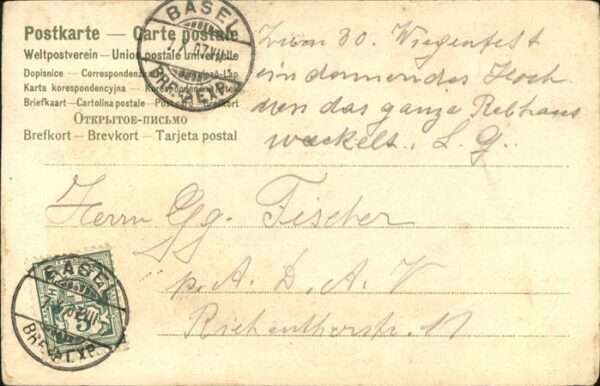 Postkarte — Carte postale
Weltpostverein — Union postale universelle
Dopisnice — Correspondenz
Karta korespondencyjna — Korespondenční
Briefkaart — Cartolina postale — Brefkort
Открытое-письмо
Brefkort — Brevkort — Tarjeta postal
BASEL
BRF. EXP.
Zum 30. Wiegenfest
ein donnerndes Hoch
das ganze Rebhaus
wackelt. L. G.
Herrn Gg. Fischer
p. A. D. A. V
Riehenthorstr. 11
BASEL
BRF. EXP.
5